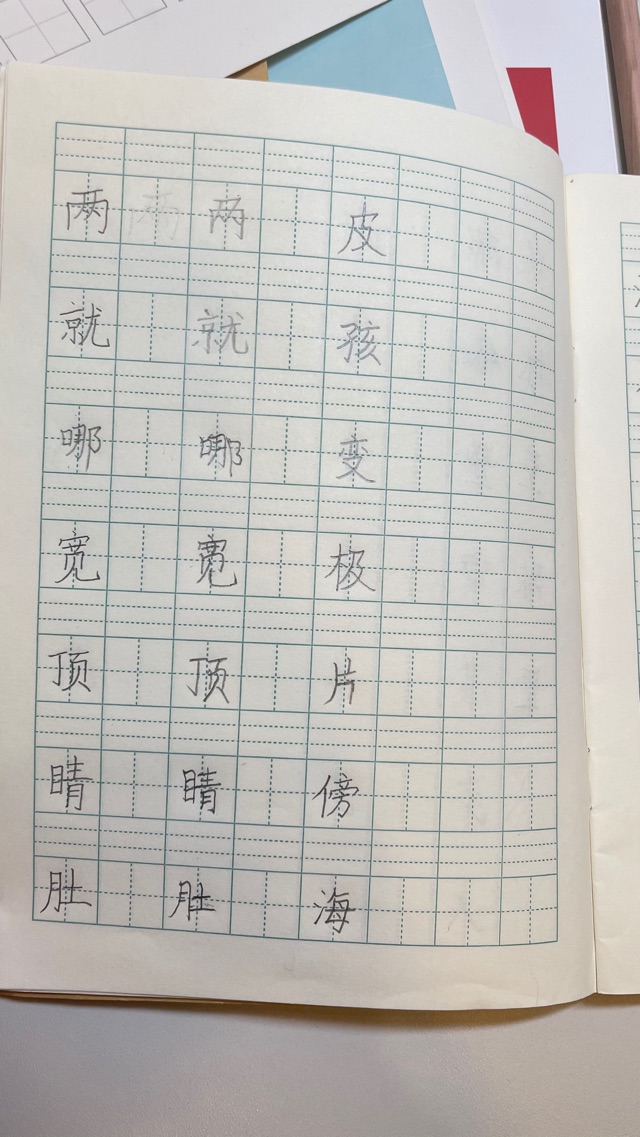 两 两 两 皮
就 就 孩
哪 哪 变
宽 宽 极
顶 顶 片
睛 睛 傍
肚 肚 海